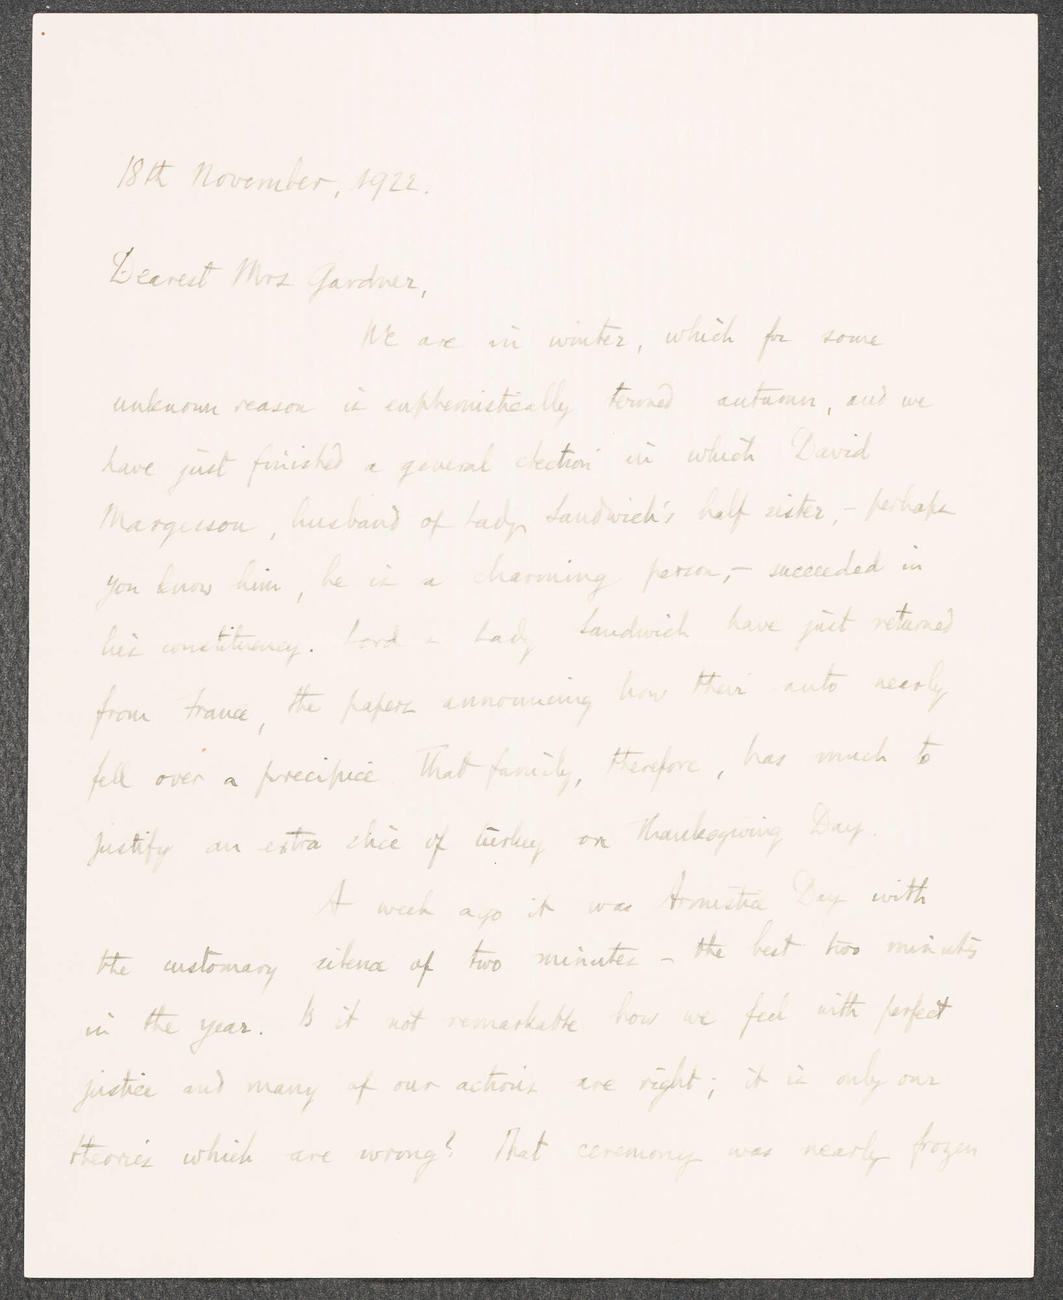 18th November, 1922.
Dearest Mrs Gardner,
We are in winter, which for some
unknown reason is euphemistically termed autumn, and we
have just finished a general election in which David
Margesson, husband of Lady Sandwich's half sister, - perhaps
you know him, he is a charming person, - succeeded in
his constituency. Lord & Lady Sandwich have just returned
from France, the papers announcing how their auto nearly
fell over a precipice. That family, therefore, has much to
justify an extra slice of turkey on Thanksgiving Day.
A week ago it was Armistice Day with
the customary silence of two minutes - the best two minutes
in the year. Is it not remarkable how we feel with perfect
justice and many of our actions are right; it is only our
theories which are wrong? That ceremony was nearly frozen